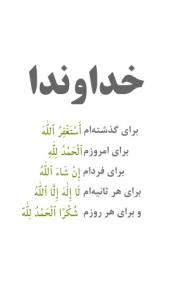 خداوندا
برای گذشته‌ام أَسْتَغْفِرُ ٱللَّهَ
برای امروزم ٱلْحَمْدُ لِلَّهِ
برای فردام إِنْ شَاءَ ٱللَّهُ
برای هر ثانیه‌ام لَا إِلَٰهَ إِلَّا ٱللَّهُ
و برای هر روزم شُكْرًا ٱلْحَمْدُ لِلَّهِ